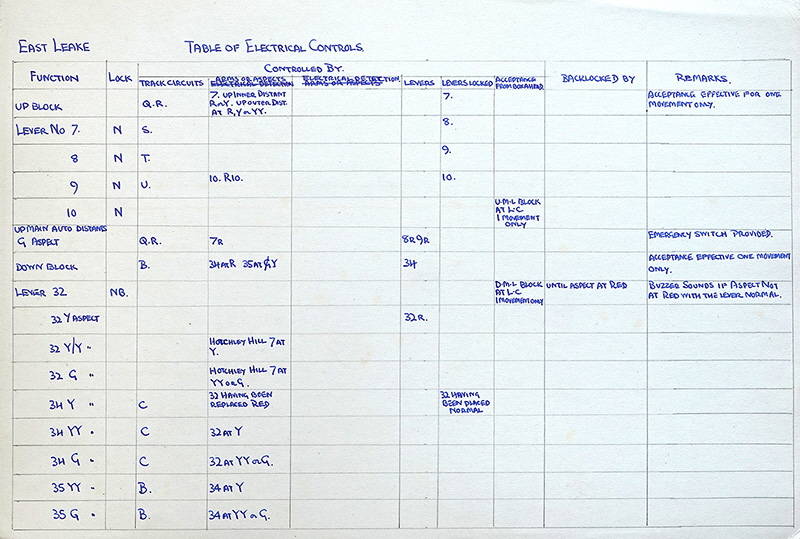 EAST LEAKE TABLE OF ELECTRICAL CONTROLS.
CONTROLLED BY.
FUNCTION LOCK TRACK CIRCUITS ARMS OR ASPECTS LEVERS LEVERS LOCKED ACCEPTANCE FROM BOX AHEAD BACKLOCKED BY REMARKS.
ELECTRICAL DETECTION ELECTRICAL DETECTION
ARMS OR ASPECTS
UP BLOCK Q.R. 7. UP INNER DISTANT 7. ACCEPTANCE EFFECTIVE FOR ONE
R or Y. UP OUTER DIST. MOVEMENT ONLY.
AT R, Y or YY.
LEVER No 7. N S. 8.
8 N T. 9.
9 N U. 10. R10. 10.
10 N U.M.L BLOCK
AT L.C
1 MOVEMENT
ONLY
UP MAIN AUTO DISTANTS
G ASPECT Q.R. 7R 8R 9R EMERGENCY SWITCH PROVIDED.
DOWN BLOCK B. 34 AT R 35 AT Y 34 ACCEPTANCE EFFECTIVE ONE MOVEMENT
ONLY.
LEVER 32 NB. D.M.L BLOCK UNTIL ASPECT AT RED BUZZER SOUNDS IF ASPECT NOT
AT L.C AT RED WITH THE LEVER NORMAL.
1 MOVEMENT ONLY
32 Y ASPECT 32R.
32 Y/Y " HOTCHLEY HILL 7 AT
Y.
32 G " HOTCHLEY HILL 7 AT
YY or G.
34 Y " C 32 HAVING BEEN 32 HAVING
REPLACED RED BEEN PLACED
NORMAL
34 YY " C 32 AT Y
34 G " C 32 AT YY or G.
35 YY " B. 34 AT Y
35 G " B. 34 AT YY or G.